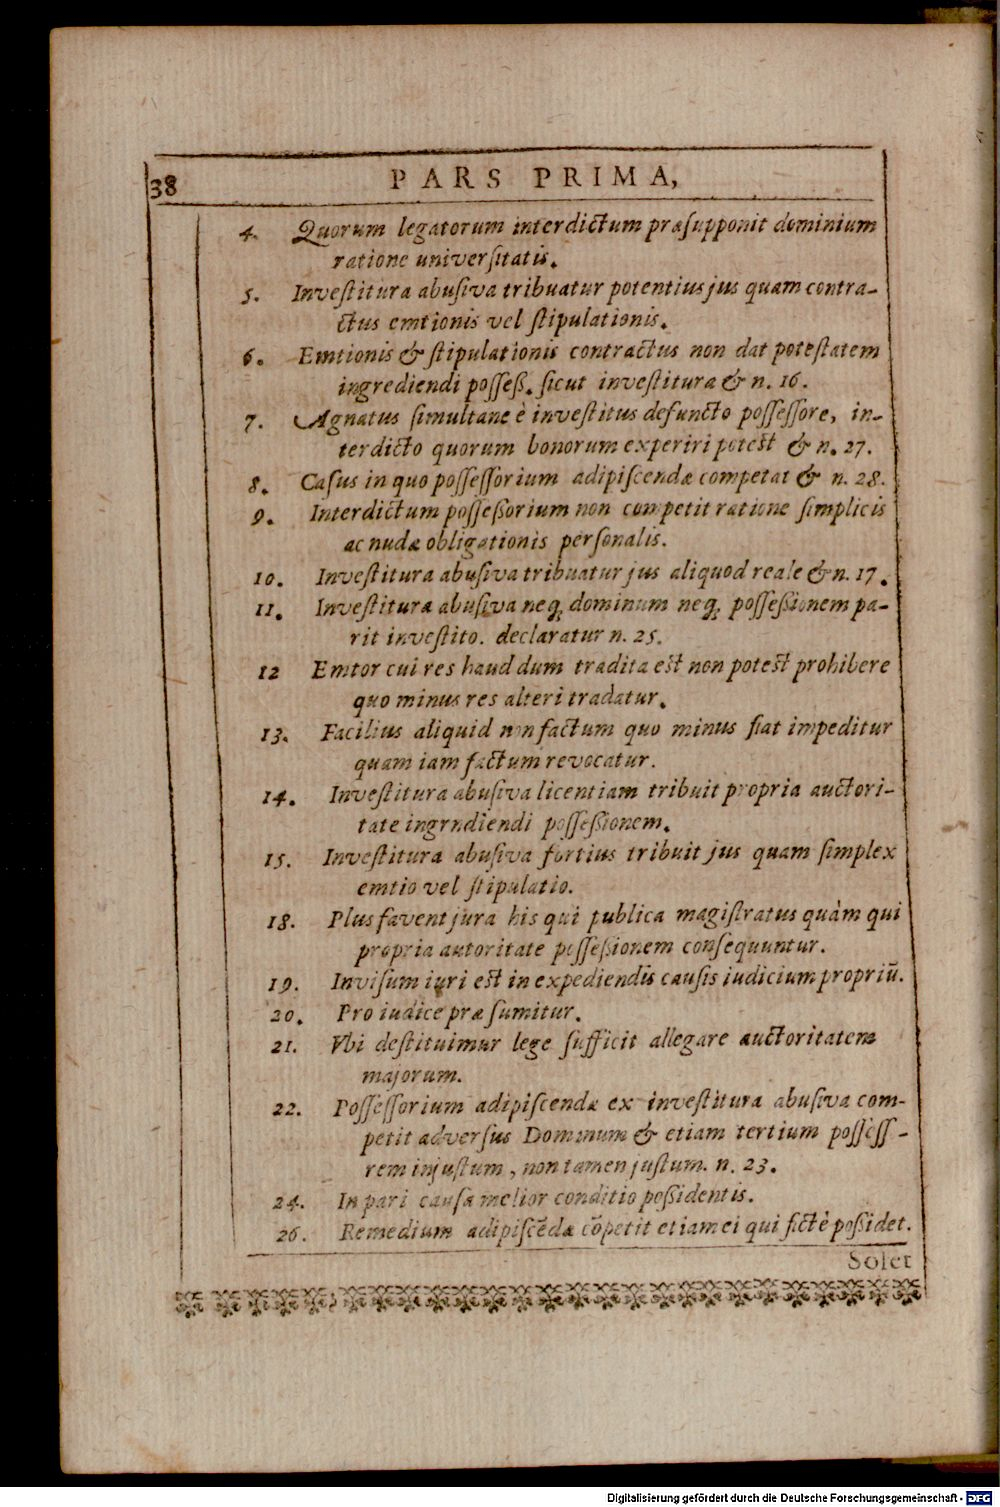 38
PARS PRIMA,
4. Quorum legatorum interdictum præsupponit dominium
ratione universitatis.
5. Investitura abusiva tribuatur potentius jus quam contra-
ctus emtionis vel stipulationis.
6. Emtionis & stipulationis contractus non dat potestatem
ingrediendi posseß. sicut investitura & n. 16.
7. Agnatus simultane è investitus defuncto possessore, in-
terdicto quorum bonorum experiri potest & n. 27.
8. Casus in quo possessorium adipiscendæ competat & n. 28.
9. Interdictum posseßorium non competit ratione simplicis
ac nudæ obligationis personalis.
10. Investitura abusiva tribuatur jus aliquod reale & n. 17.
11. Investitura abusiva neq; dominum neq; posseßionem pa-
rit investito. declaratur n. 25.
12 Emtor cui res haud dum tradita est non potest prohibere
quo minus res alteri tradatur.
13. Facilius aliquid non factum quo minus fiat impeditur
quam iam factum revocatur.
14. Investitura abusiva licentiam tribuit propria auctori-
tate ingrndiendi posseßionem.
15. Investitura abusiva fortius tribuit jus quam simplex
emtio vel stipulatio.
18. Plus favent jura his qui publica magistratus quàm qui
propria autoritate posseßionem consequuntur.
19. Invisum iuri est in expediendis causis iudicium propriū.
20. Pro iudice præsumitur.
21. Vbi destituimur lege sufficit allegare auctoritatem
majorum.
22. Possessorium adipiscendæ ex investitura abusiva com-
petit adversus Dominum & etiam tertium possess-
rem injustum, non tamen justum. n. 23.
24. In pari causa melior conditio poßidentis.
26. Remedium adipiscēdæ cōpetit etiam ei qui fictè poßidet.
Solet
Digitalisierung gefördert durch die Deutsche Forschungsgemeinschaft - DFG